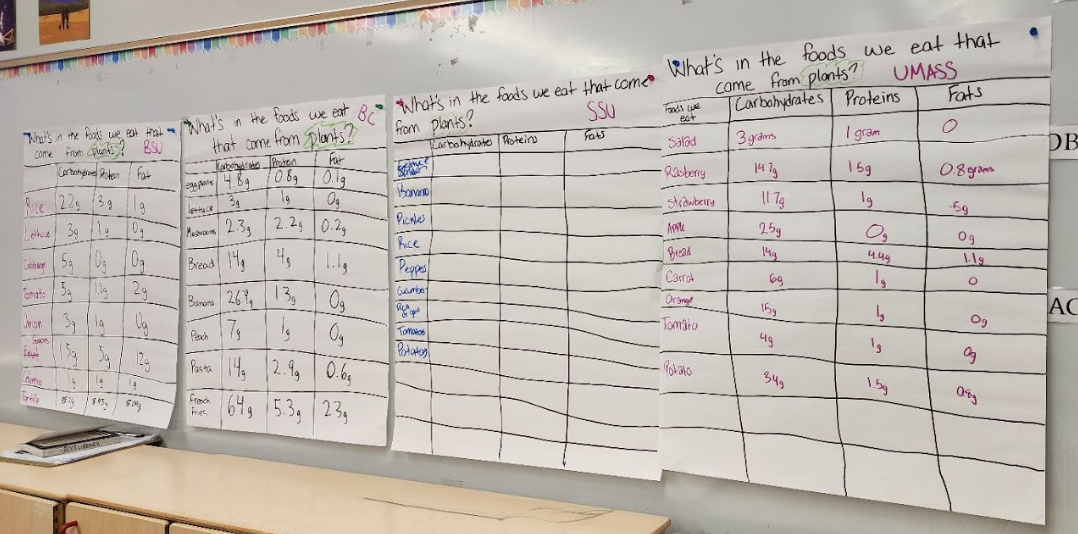 What's in the foods we eat that
come from plants? BSU
Carbohydrate Protein Fat
Rice 22g 3g 1g
Lettuce 3g 1g 0g
Cabbage 5g 0g 0g
Tomato 5g 1.1g 2g
Onion 3g 1g 0g
Grapes
15g 5g 12g
1g 1g 1g
Tortilla
What's in the foods we eat BC
that come from plants?
Carbohydrates Protein Fat
eggplants 4.8g 0.8g 0.1g
lettuce 3g 1g 0g
Mushrooms 2.3g 2.2g 0.2g
Bread 14g 4g 1.1g
Banana 1.3g 0g
Peach 7g 1g 0g
Pasta 14g 2.9g 0.6g
French Fries 64g 5.3g 23g
What's in the foods we eat that come
from plants? SSU
Carbohydrates Proteins Fats
Banana
Pickles
Rice
Pepper
Cucumber
Tomatoes
Potatoes
What's in the foods we eat that
come from plants? UMASS
Foods we eat Carbohydrates Proteins Fats
Salad 3 grams 1 gram 0
Rasberry 14.7g 15g 0.8 grams
Strawberry 11.7g 1g .5g
Apple 25g 0g 0g
Bread 14g 4.4g 1.1g
Carrot 6g 1g 0
Orange 15g 1g 0g
Tomato 4g 1g 0g
Potato 34g 1.5g 0.8g
OB
AC